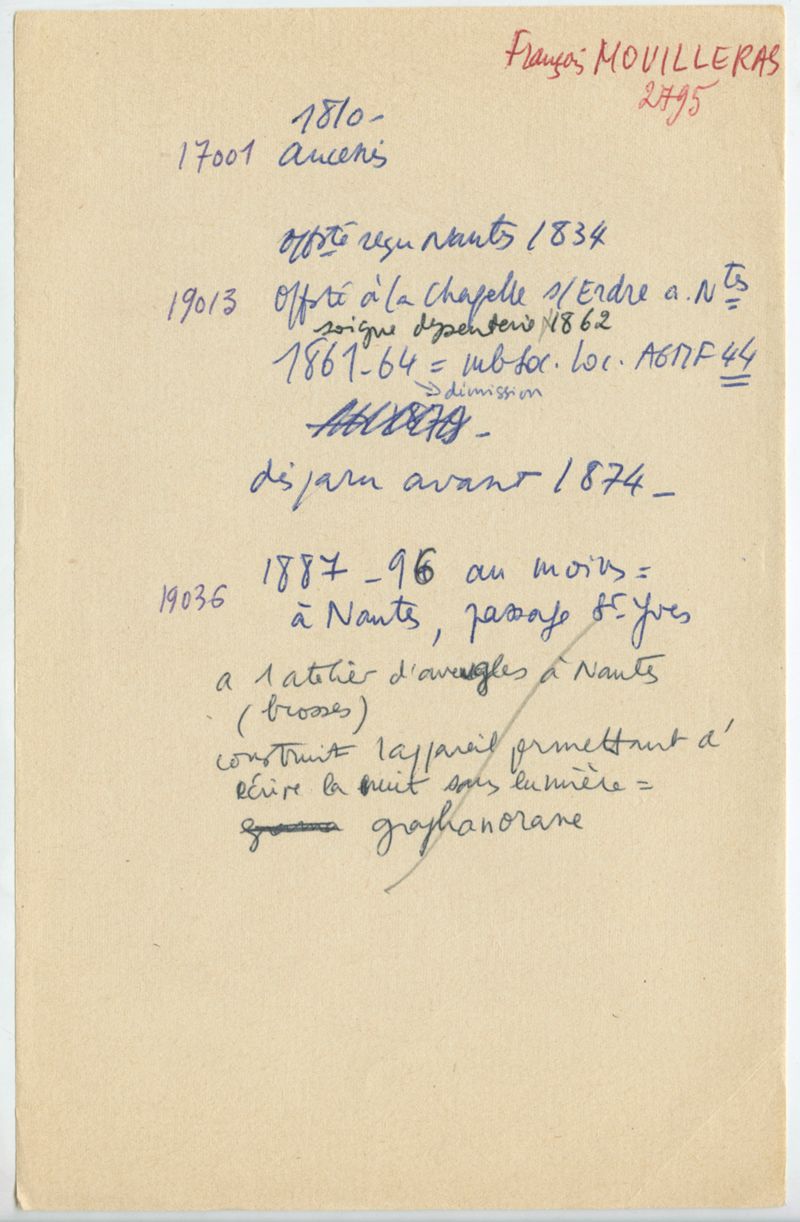 François MOUILLERAS
2795
1810-
17001 Ancenis
offsté reçu Nantes 1834
19013 offsté à la Chapelle s/Erdre a. Ntes
soigne dysenterie 1862
1861-64 = mb soc. loc. AGMF 44
→ démission
disparu avant 1874_
1887_96 au moins =
19036 à Nantes, passage St-Yves
a l'atelier d'aveugles à Nantes
(brosses)
construit l'appareil permettant d'
écrire la nuit sans lumière =
graphanorane